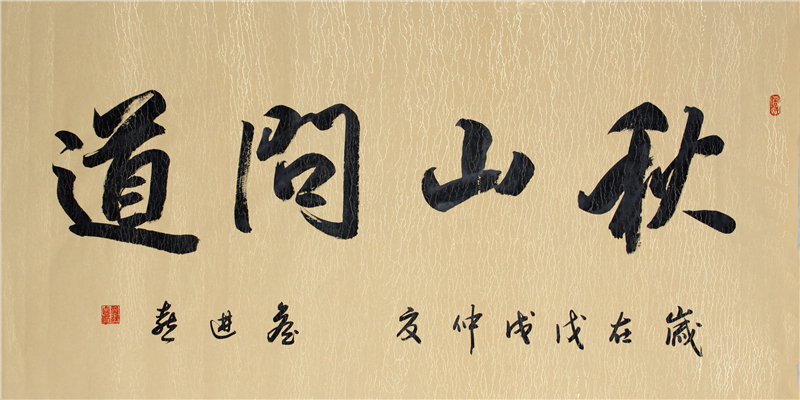 秋山問道
歲在戊戌仲夏 進